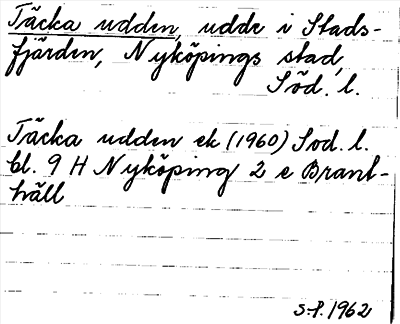 Täcka udden, udde i Stads-
fjärden, Nyköpings stad,
Söd. l.
Täcka udden ek (1960) Söd. l.
bl. 9 H Nyköping 2 e Brant-
häll
S.P. 1962